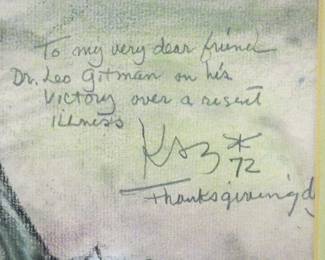 To my very dear friend
Dr. Leo Gitman on his
Victory over a resent
illness
72
Thanksgiving d